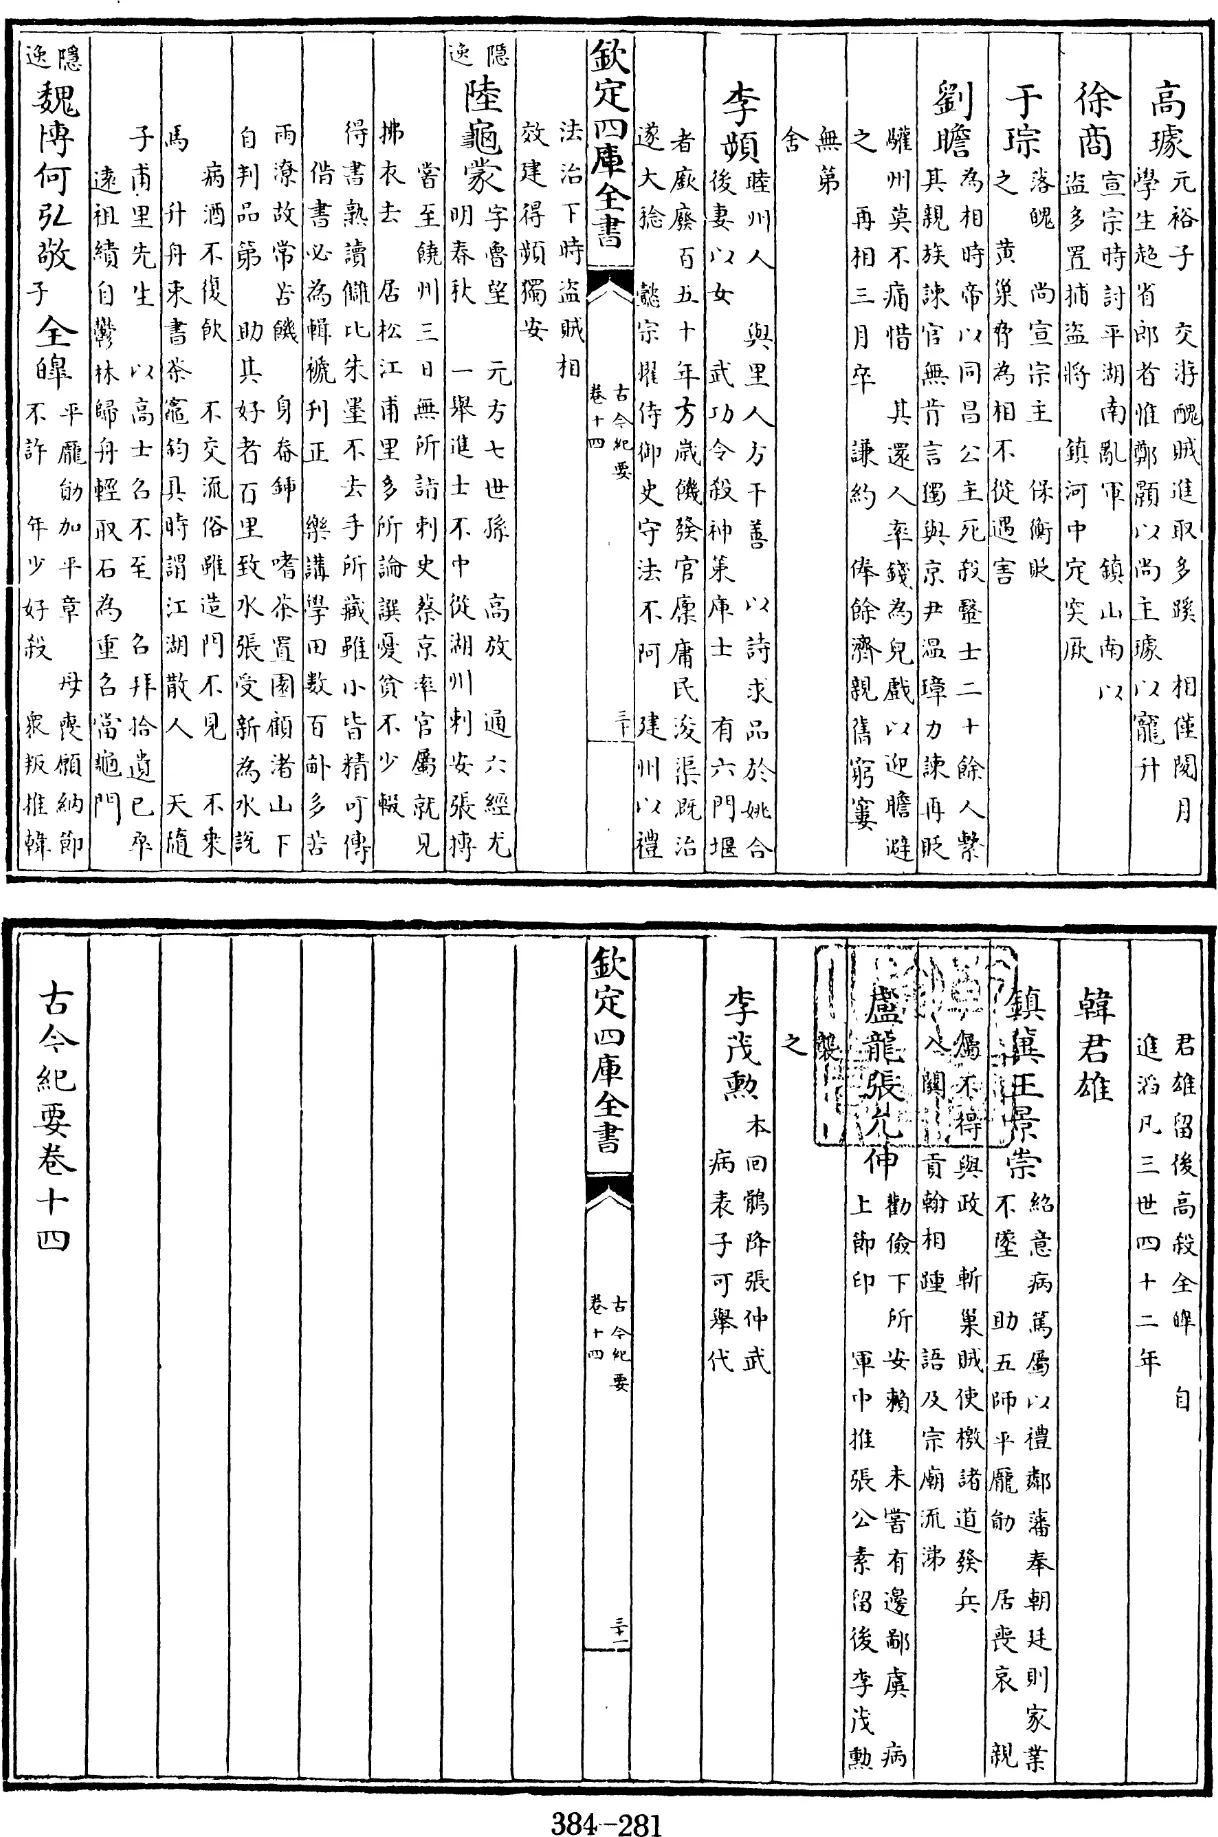 高璩
元裕子 交游醜賊進取多蹊 相僅閱月
學生超省郎者惟鄭顥以尚主璩以寵升
徐商
宣宗時討平湖南亂軍 鎮山南以
盜多置捕盜將 鎮河中定突厥
于琮
落魄 尚宣宗主 保衡貶
之 黄巢脅為相不從遇害
劉瞻
為相時帝以同昌公主死殺醫士二十餘人繫
其親族諫官無肯言獨與京尹温璋力諫再貶
驩州莫不痛惜 其還人率錢為兒戲以迎瞻避
之 再相三月卒 謙約 俸餘濟親舊窮窶
無第
舍
李頻
睦州人 與里人方干善 以詩求品於姚合
後妻以女 武功令殺神策庫士 有六門堰
者廞廢百五十年方歲饑發官廩庸民浚渠既治
遂大稔 懿宗擢侍御史守法不阿 建州以禮
欽定四庫全書
古今紀要
卷十四
三十
法治下時盗賊相
效建得頻獨安
隱逸
陸龜蒙
字魯望 元方七世孫 高放 通六經尤
明春秋 一舉進士不中從湖州刺安張摶
嘗至饒州三日無所詣刺史蔡京率官屬就見
拂衣去 居松江甫里多所論譔憂貧不少輟
得書熟讀讎比朱墨不去手所藏雖小皆精可傳
借書必為輯褫刊正 樂講學田数百畝多苦
雨潦故常苦饑 身畚鍤 嗜茶置園顧渚山下
自判品第 助其好者百里致水張受新為水說
病酒不復飲 不交流俗雖造門不見 不乘
馬 升舟束書茶竈鈞具時謂江湖散人 天隨
子甫里先生 以高士召不至 召拜拾遺已卒
遠祖績自鬱林歸舟輕取石為重名當龜門
隱逸
魏博何弘敬子全皞
平龐勛加平章 母喪願納節
不許 年少好殺 衆叛推韓
君雄留後高殺全皞 自
進滔凡三世四十二年
韓君雄
鎮冀王景崇
紹意病篤屬以禮鄰藩奉朝廷則家業
不墜 助五師平龐勛 居喪哀 親
屬不得與政 斬巢賊使檄諸道發兵
入關貢翰相踵 語及宗廟流涕
盧龍張允伸
勸儉下所安賴 未嘗有邊鄙虞 病
上節印 軍中推張公素留後李茂勳
襲
之
李茂勳
本回鶻降張仲武
病表子可舉代
欽定四庫全書
古今紀要
卷十四
三十一
古今紀要卷十四
384-281